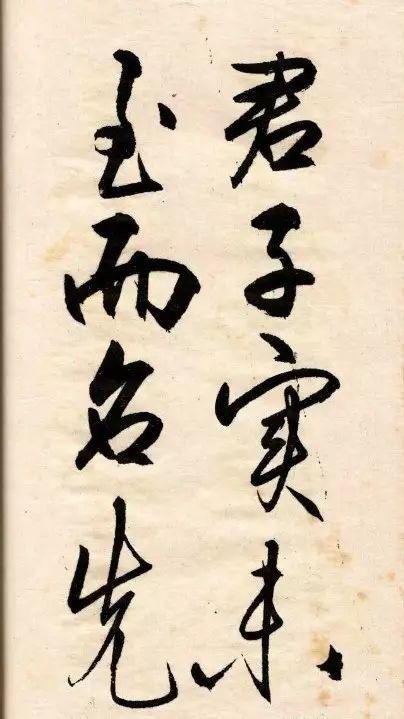 君子实未
至而名先